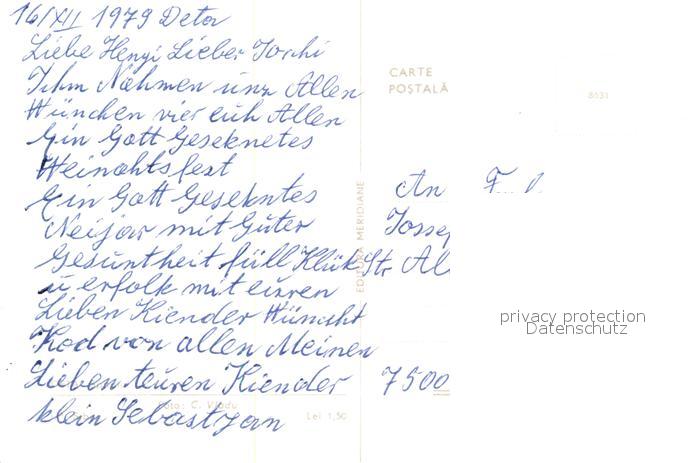 16/XII 1979 Deta
Liebe Henyi Lieber Jorchi
Ihm Nahmen unz Allen
Wünchen vier euh Allen
Ein Gott Geseknetes
Weinahtsfest
Ein Gott Gesekntes
Neijar mit Guter
Gesuntheit füll Klük
u erfolk mit euren
Lieben Kiender Wünscht
Kod von allen Meinen
Lieben teuren Kiender
klein Sebastjan
CARTE
POȘTALĂ
8631
EDITURA MERIDIANE
An F.
Josse
Str. Al
7500
Foto: C. Vladu
Lei 1,50
privacy protection
Datenschutz